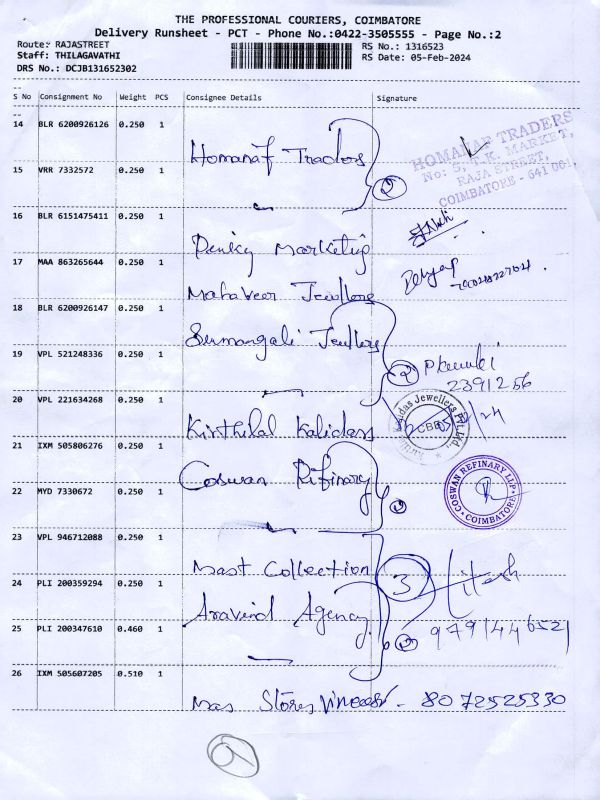 THE PROFESSIONAL COURIERS, COIMBATORE
Delivery Runsheet - PCT - Phone No.:0422-3505555 - Page No.:2
Route: RAJASTREET RS No.: 1316523
Staff: THILAGAVATHI RS Date: 05-Feb-2024
DRS No.: DCJB131652302
S No Consignment No Weight PCS Consignee Details Signature
14 BLR 6200926126 0.250 1 Homanaf Traders
HOMANAF TRADERS
No: 5, T.K. MARKET,
RAJA STREET,
COIMBATORE - 641 001.
15 VRR 7332572 0.250 1 2
16 BLR 6151475411 0.250 1 Marketing
17 MAA 863265644 0.250 1 Mahaveer Jewllers
18 BLR 6200926147 0.250 1 Sumangali Jewllers
19 VPL 521248336 0.250 1 2
2391256
20 VPL 221634268 0.250 1 Kirthilal Kalidass
Jewellers
CBE
21 IXM 505806276 0.250 1 Coswan Rifinary
22 MYD 7330672 0.250 1 2
COSWAN REFINARY LLP
COIMBATORE
23 VPL 946712088 0.250 1 Mast Collection
3 Hitesh
24 PLI 200359294 0.250 1 Aravind Agency
25 PLI 200347610 0.460 1 2
9791446521
26 IXM 505607205 0.510 1 Mas Stores - 8072525330